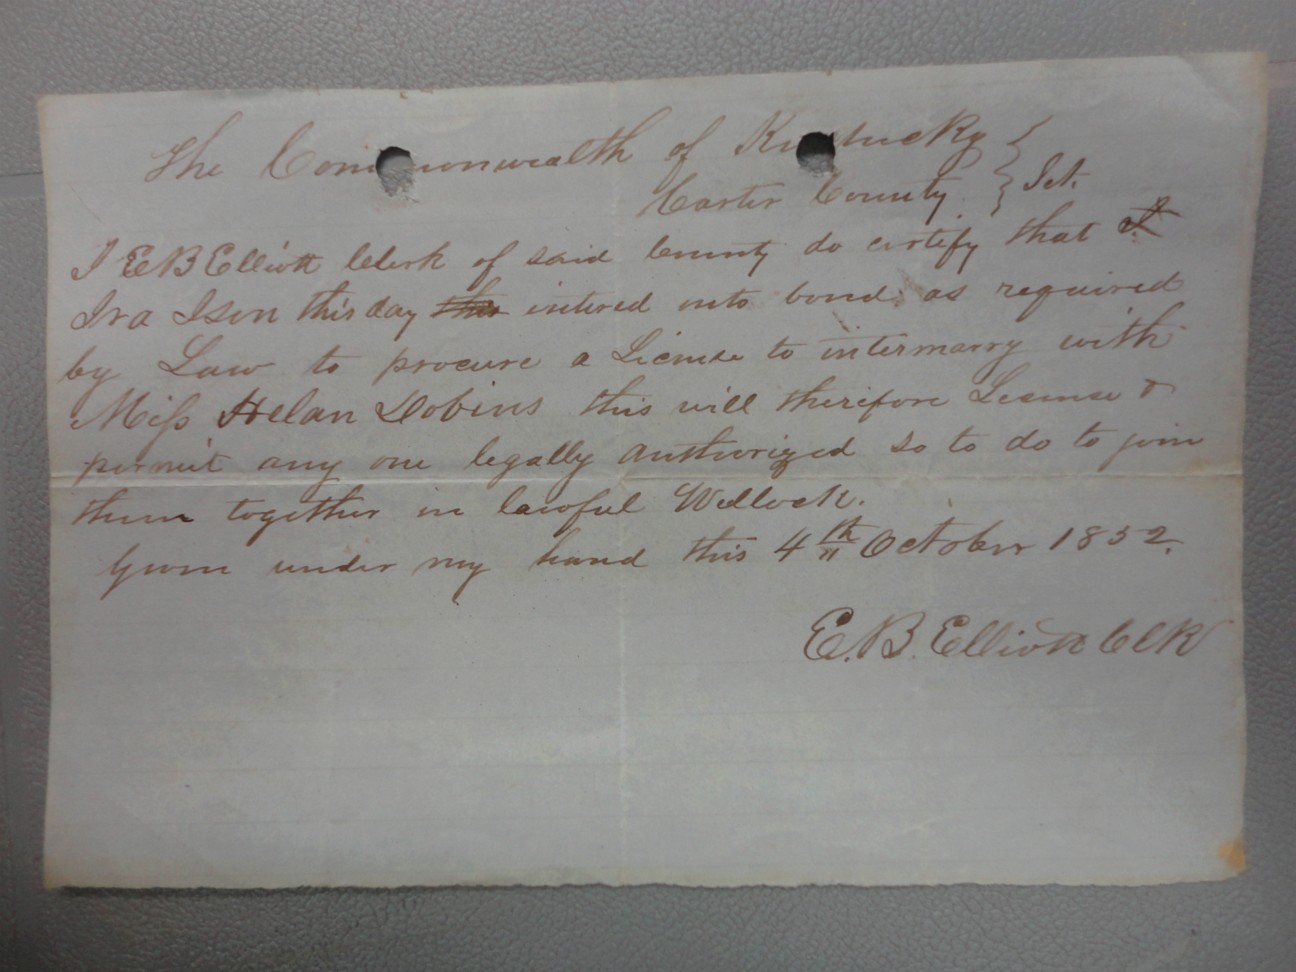 The Commonwealth of Kentucky }
Carter County } Sct.
I E B Elliott Clerk of said County do certify that
Ira Ison this day this intered into bond as required
by Law to procure a License to intermarry with
Miss Helan Dobins this will therefore License &
permit any one legally authorized so to do to join
them together in lawful Wedlock.
Given under my hand this 4th October 1852.
E. B. Elliott Clk